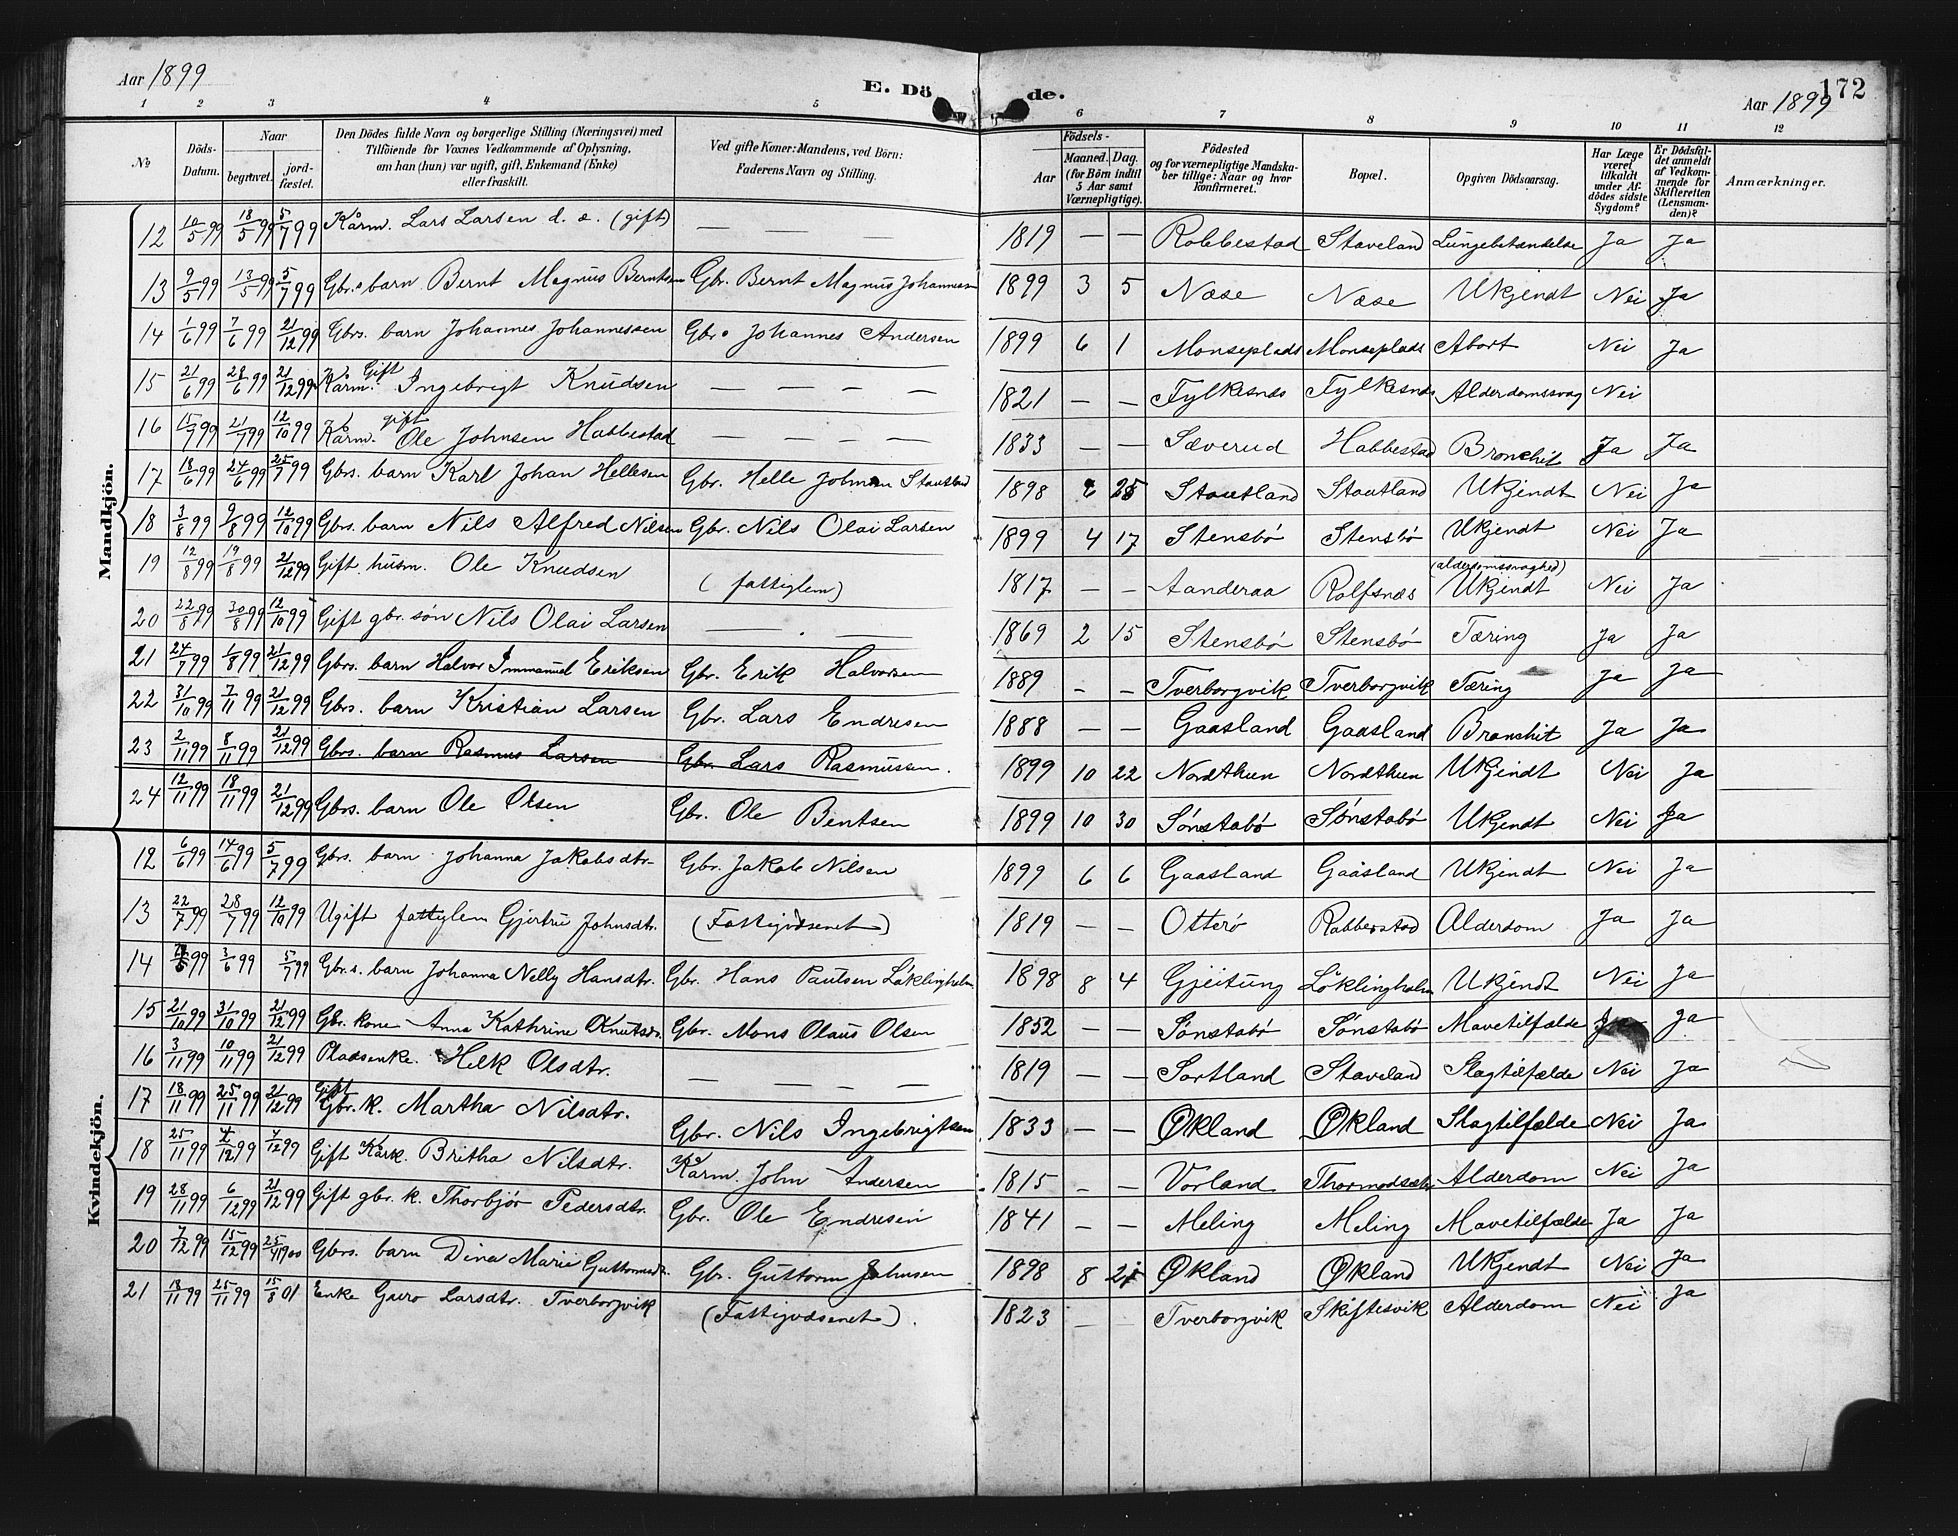 Aar 1899
E. Döde.
Aar 1899
172
1 2 3 4 5 6 7 8 9 10 11 12
No
Döds-Datum.
Naar
begravet.
jord-fæstet.
Den Dödes fulde Navn og borgerlige Stilling (Næringsvei) med
Tilföiende for Voxnes Vedkommende af Oplysning,
om han (hun) var ugift, gift, Enkemand (Enke)
eller fraskilt.
Ved gifte Koner: Mandens, ved Börn:
Faderens Navn og Stilling.
Födsels-
Aar
Maaned. Dag.
(for Börn indtil
5 Aar samt
Værnepligtige).
Födested
og for værnepligtige Mandska-
ber tillige: Naar og hvor
Konfirmeret.
Bopæl.
Opgiven Dödsaarsag.
Har Læge
været
tilkaldt
under Af-
dödes sidste
Sygdom?
Er Dödsfal-
det anmeldt
af Vedkom-
mende for
Skifteretten
(Lensman-
den)?
Anmærkninger.
Mandkjön.
12 10/5 99 18/5 99 5/7 99 Kårm. Lars Larsen d. æ. (gift) — — — 1819 — — Robbestad Staveland Lungebetændelse Ja Ja
13 9/5 99 13/5 99 5/7 99 Gbr.s barn Bernt Magnus Berntsen Gbr. Bernt Magnus Johannesen 1899 3 5 Næse Næse Ukjendt Nei Ja
14 1/6 99 7/6 99 21/12 99 Gbrs. barn Johannes Johannessen Gbr. Johannes Andersen 1899 6 1 Monseplads Monseplads Abort Nei Ja
15 21/6 99 28/6 99 21/12 99 Kårm. Gift Ingebrigt Knudsen — — — — 1821 — — Fylkesnæs Fylkesnæs Alderdomssvag Nei
16 15/7 99 21/7 99 12/10 99 Kårm. gift Ole Johnsen Habbestad — — — — 1833 — — Sæverud Habbestad Bronchit Ja Ja
17 18/6 99 24/6 99 25/7 99 Gbrs. barn Karl Johan Hellesen Gbr. Helle Johnsen Stoutland 1898 6 25 Stoutland Stoutland Ukjendt Nei Ja
18 3/8 99 9/8 99 12/10 99 Gbrs. barn Nils Alfred Nilsen Gbr. Nils Olai Larsen 1899 4 17 Stensbö Stensbö Ukjendt Nei Ja
19 12/8 99 19/8 99 21/12 99 Gift husm. Ole Knudsen (fattiglem) 1817 — — Aanderaa Rolfsnæs (alderdomssvaghed) Ukjendt Nei Ja
20 22/8 99 30/8 99 12/10 99 Gift gbr. søn Nils Olai Larsen — — 1869 2 15 Stensbö Stensbö Tæring Ja Ja
21 24/7 99 1/8 99 21/12 99 Gbrs. barn Halvor Immanuel Eriksen Gbr. Erik Halvorsen 1889 — — Tverborgvik Tverborgvik Tæring Ja Ja
22 31/10 99 7/11 99 21/12 99 Gbrs. barn Kristian Larsen Gbr. Lars Endresen 1888 — — Gaasland Gaasland Bronchit Ja Ja
23 2/11 99 8/11 99 21/12 99 Gbrs. barn Rasmus Larsen Gbr. Lars Rasmussen. 1899 10 22 Nordthun Nordthun Ukjendt Nei Ja
24 12/11 99 18/11 99 21/12 99 Gbrs. barn Ole Olsen Gbr. Ole Bentsen 1899 10 30 Sønstabø Sønstabø Ukjendt Nei Ja
Kvindekjön.
12 6/6 99 14/6 99 5/7 99 Gbrs. barn Johanna Jakobsdtr. Gbr. Jakob Nilsen 1899 6 6 Gaasland Gaasland Ukjendt Nei Ja
13 22/7 99 28/7 99 12/10 99 Ugift fattiglem Gjertru Johnsdtr. (Fattigvæsenet) 1819 — — Otterø Rabbestad Alderdom Ja Ja
14 99 3/6 99 5/7 99 Gbr.s. barn Johanna Nelly Hansdtr. Gbr. Hans Paulsen Löklingholm 1898 8 4 Gjeitung Löklingholm Ukjendt Nei Ja
15 21/10 99 31/10 99 21/12 99 Gbr. kone Anna Kathrine Knutsdr. Gbr. Mons Olaus Olsen 1852 — — Sønstabø Sønstabø Mavetilfælde Ja Ja
16 3/11 99 10/11 99 21/12 99 Pladsenke. Helk Olsdtr. — — — — 1819 — — Sortland Staveland Slagtilfælde Nei Ja
17 18/11 99 25/11 99 21/12 99 Gift Gbr. k. Martha Nilsdtr. Gbr. Nils Ingebrigtsen 1833 — — Økland Økland Slagtilfælde Nei Ja
18 25/11 99 4/12 99 4/12 99 Gift Kårk. Britha Nilsdtr. Kårm. John Andersen 1815 — — Vorland Thormodsæter Alderdom Nei Ja
19 28/11 99 6/12 99 21/12 99 Gift gbr. k. Thorbjør Pedersdtr. Gbr. Ole Endresen 1841 — — Meling Meling Mavetilfælde Ja Ja
20 7/12 99 15/12 99 25/4 1900 Gbrs. barn Dina Marie Guttormsd. Gbr. Guttorm Johnsen 1898 8 21 Økland Økland Ukjendt Nei Ja
21 18/11 99 25/11 99 15/8 01 Enke Guro Larsdtr. Tverborgvik (Fattigvæsenet). 1823 — — Tverborgvik Skiftesvik Alderdom Nei Ja